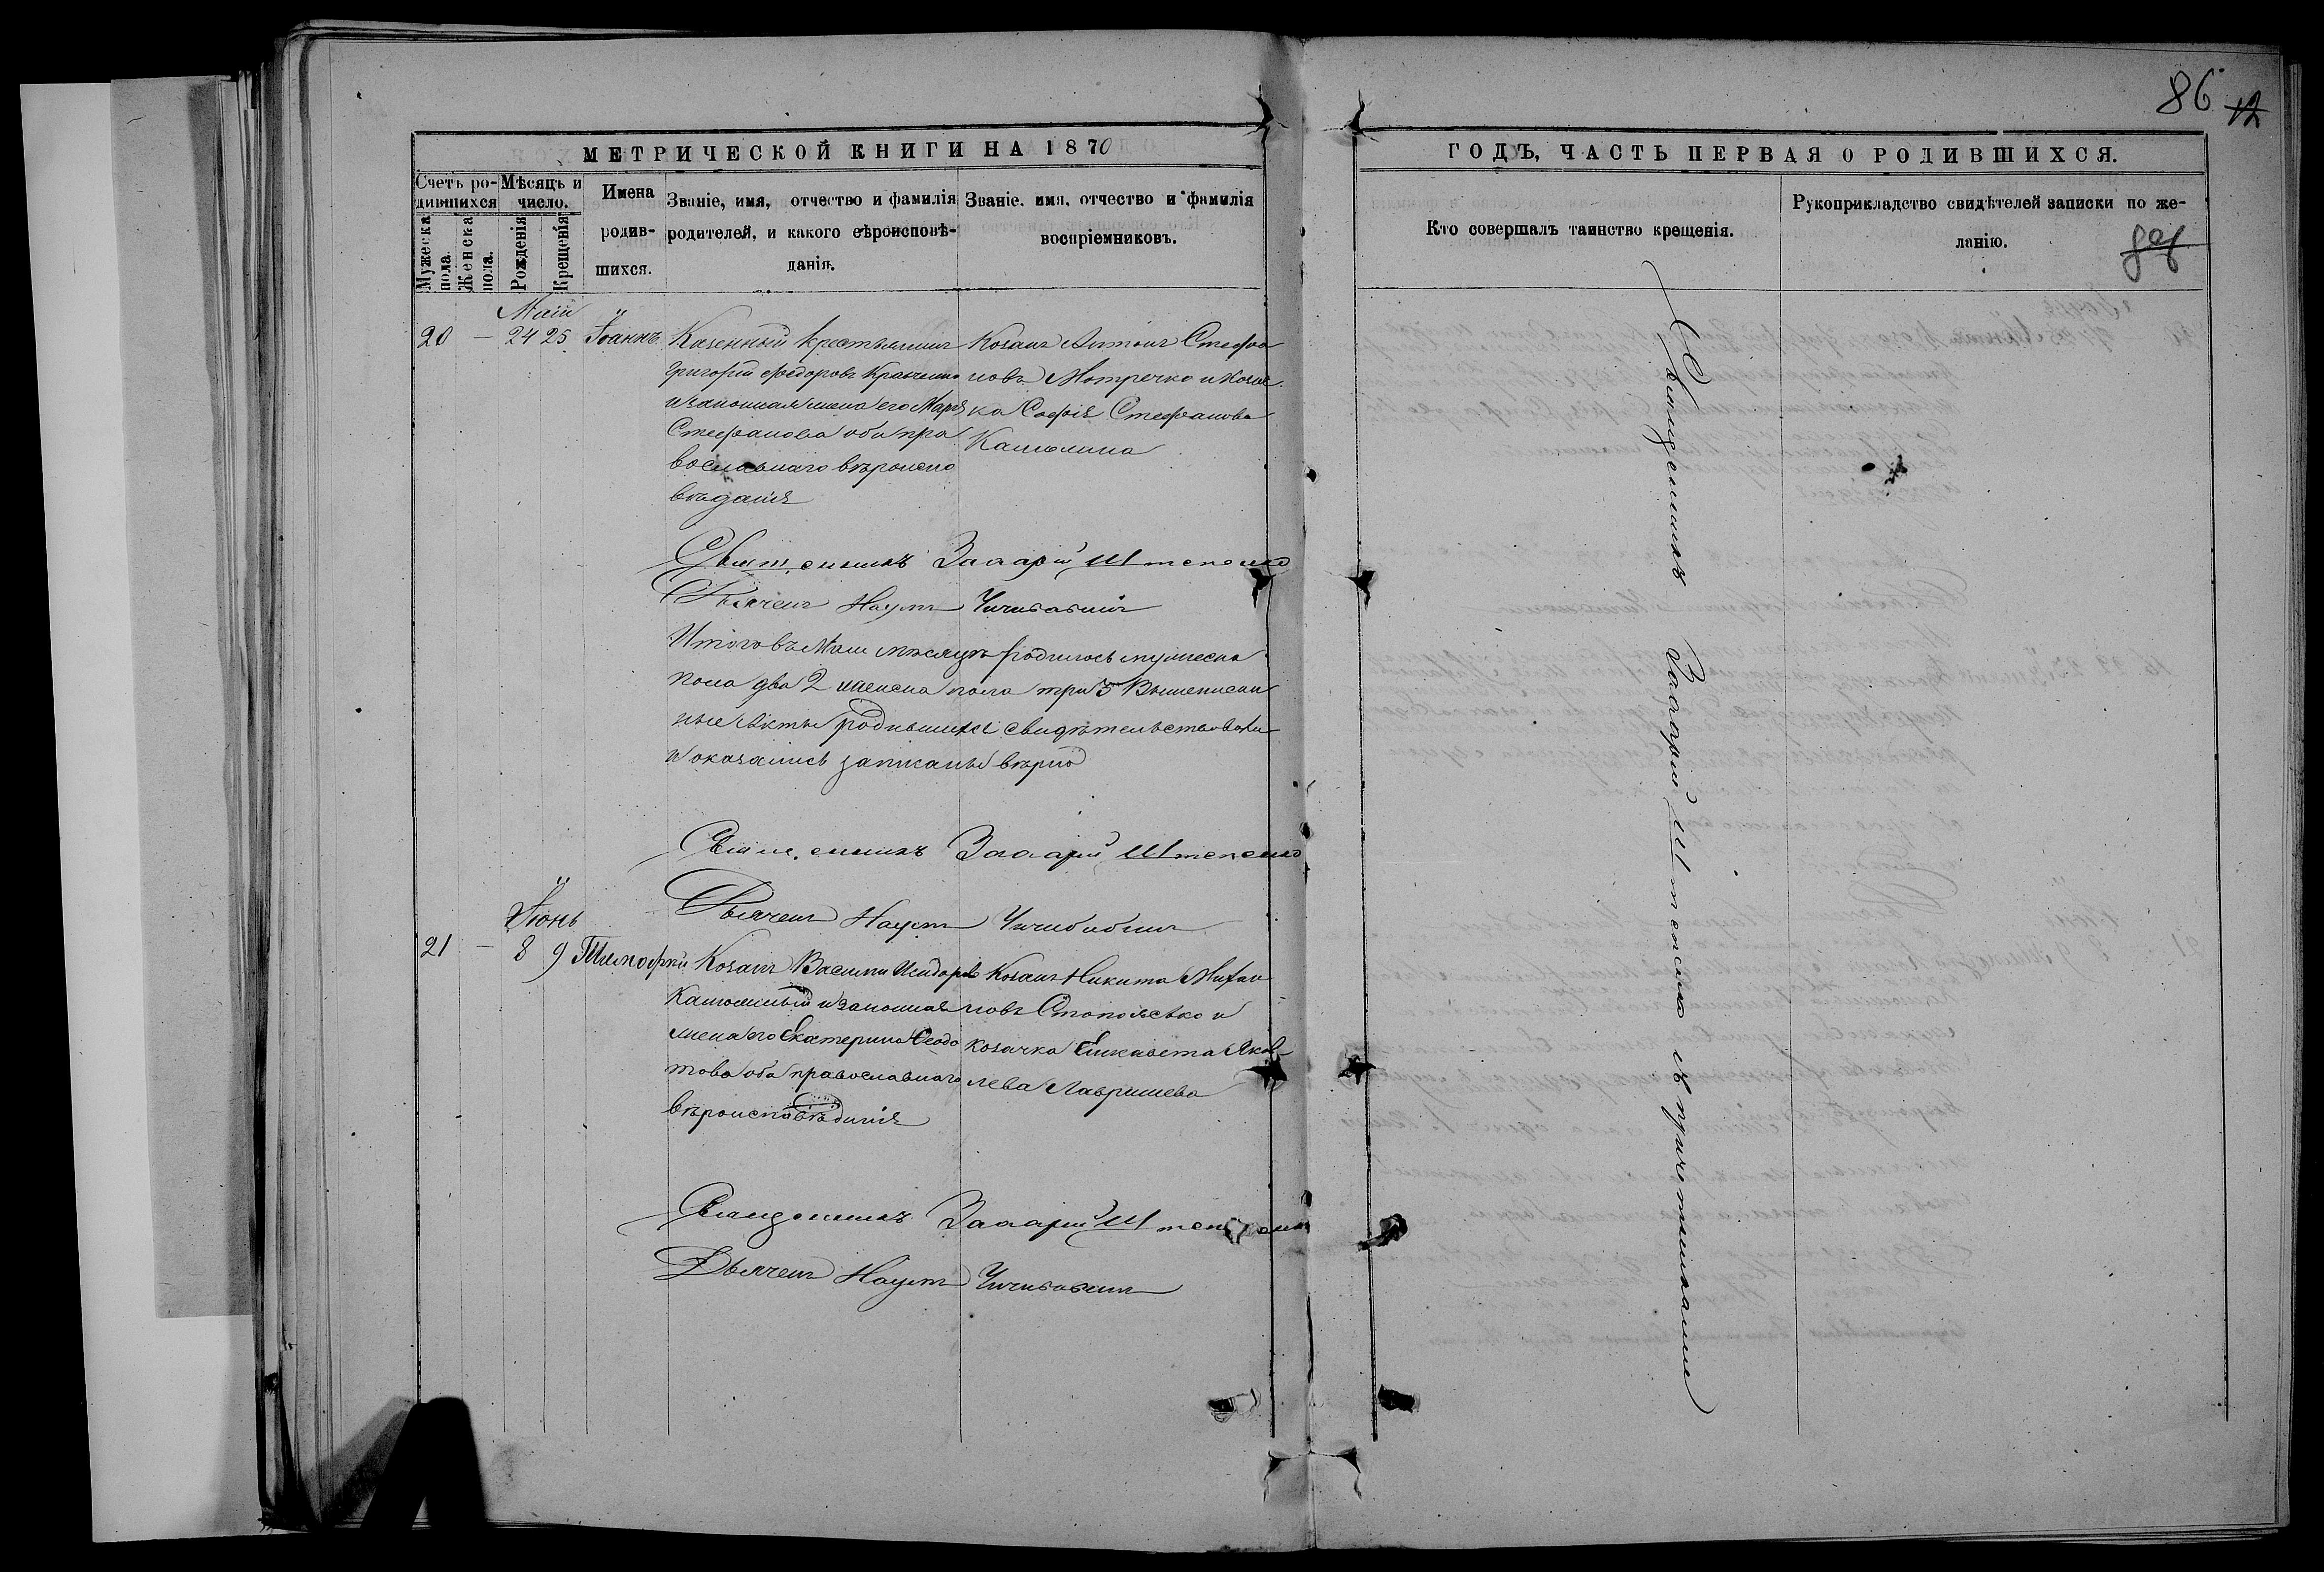 86 12
МЕТРИЧЕСКОЙ КНИГИ НА 1870
ГОДЪ, ЧАСТЬ ПЕРВАЯ О РОДИВШИХСЯ.
Счетъ ро-
дившихся
Мужеска
пола.
Женска
пола.
Мѣсяцъ и
число.
Рожденія
Крещенія
Имена
родив-
шихся.
Званіе, имя, отчество и фамилія
родителей, и какого вѣроисповѣ-
данія.
Званіе, имя, отчество и фамилія
воспріемниковъ.
Кто совершалъ таинство крещенія.
Рукоприкладство свидѣтелей записки по же-
ланію.
Маій
20 — 24 25 Іоаннъ
Казенный крестьянинъ
Григорій Ѳедоровъ Кравченко
и законная жена его Марія
Стефанова оба пра
вославнаго вѣроиспо
вѣданія
Козакъ Антонъ Стефа
новъ Мотречко и козач
ка Софія Стефанова
Калюжина
Священникъ Захарій Штепенко
Дьячекъ Наумъ Чичибабинъ
Итого въ Маіи мѣсяцѣ родилось мужеска
пола два 2 женска пола три 3 Вышеписан
ные акты родившихся свидѣтельствовали
и оказались записаны вѣрно
Священникъ Захарій Штепенко
Дьячекъ Наумъ Чичибабинъ
Іюнь
21 — 8 9 Тимофей
Козакъ Василій Исидоровъ
Калюжный и законная
жена его Екатерина Феодо
това оба православнаго
вѣроисповѣданія
Козакъ Никита Михаи
новъ Стопольско и
козачка Елисавета Яков
лева Лавришева
Священникъ Захарій Штепенко
Дьячекъ Наумъ Чичибабинъ
Священникъ Захарій Штепенко съ причетниками